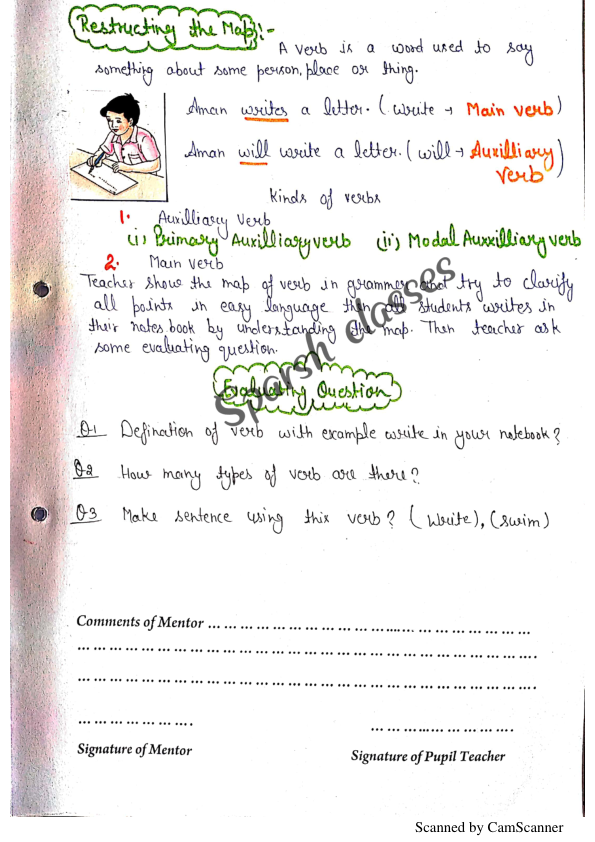 Restructing the Map:-
A verb is a word used to say
something about some person, place or thing.
Aman writes a letter. (write → Main verb)
Aman will write a letter. (will → Auxilliary
verb)
Kinds of verbs
1. Auxilliary verb
(i) Primary Auxilliary verb (ii) Modal Auxxilliary verb
2. Main verb
Teacher show the map of verb in grammer and try to clarify
all points in easy language then all students writes in
their notes book by understanding the map. Then teacher ask
some evaluating question.
Sparsh classes
Evaluating Question
Q1 Defination of verb with example write in your notebook?
Q2 How many types of verb are there?
Q3 Make sentence using this verb? (write), (swim)
Comments of Mentor ... ... ... ... ... ... ... ... ... ... ... ... ... ... ... ... ...
... ... ... ... ... ... ... ... ... ... ... ... ... ... ... ... ... ... ... ... ... ... ... ....
... ... ... ... ... ... ... ... ... ... ... ... ... ... ... ... ... ... ... ... ... ... ... ....
... ... ... ... ... ... .... ... ... ... ... ... ... ... ... ....
Signature of Mentor Signature of Pupil Teacher
Scanned by CamScanner